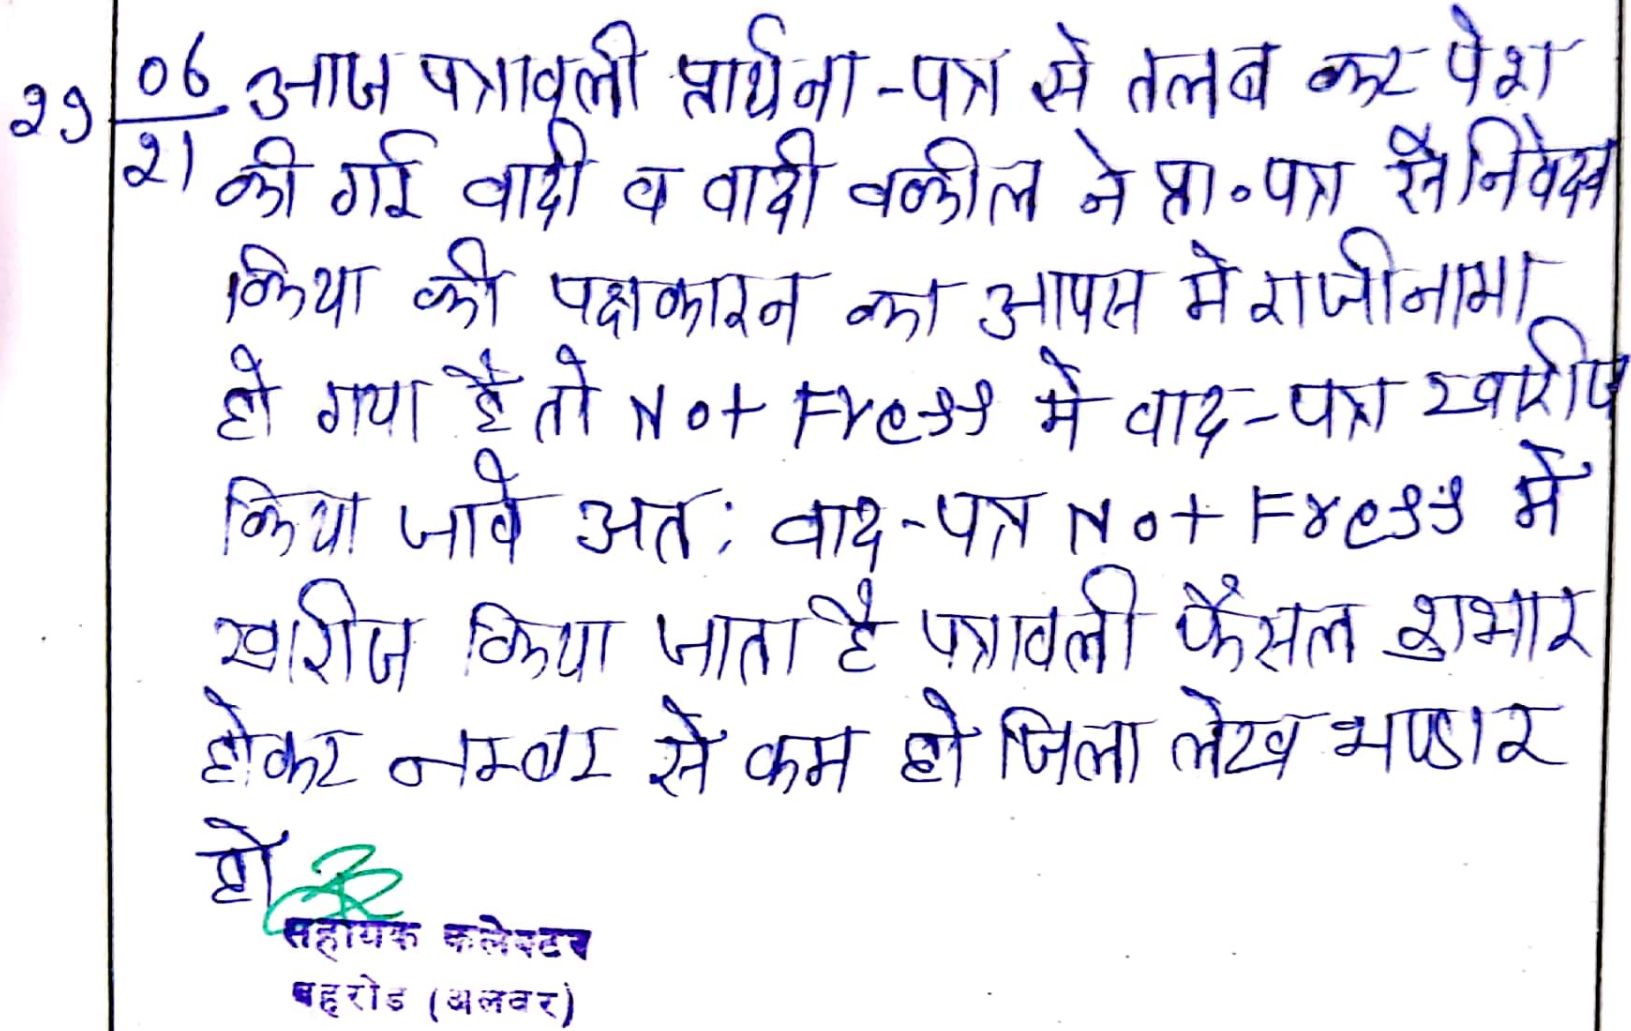 29 06/21 आज पत्रावली प्रार्थना-पत्र से तलब कर पेश
की गई वादी व वादी वकील ने प्रा०पत्र से निवेदन
किया की पक्षकारन का आपस मे राजीनामा
हो गया है तो Not Fress मे वाद-पत्र खारीज
किया जावे अत: वाद-पत्र Not Fress में
खारीज किया जाता है पत्रावली फैसल शुमार
होकर नम्बर से कम हो जिला लेख भण्डार
हो
सहायक कलेक्टर
बहरोड (अलवर)